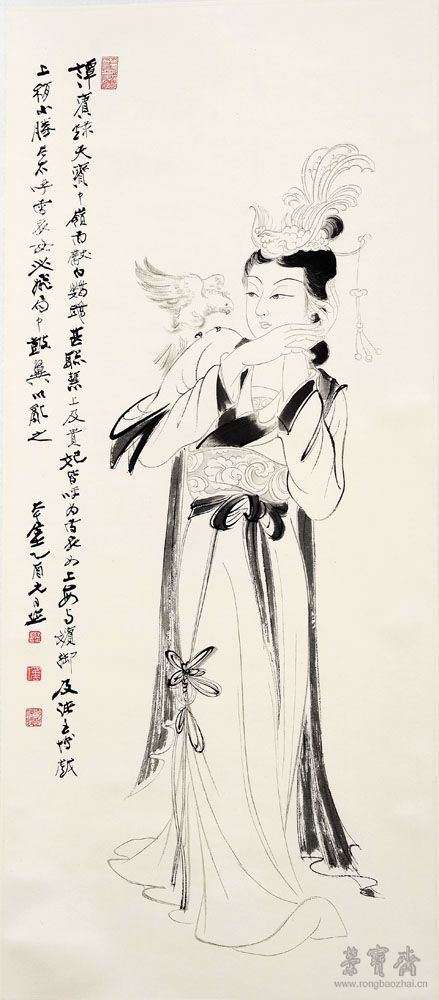 譚賓錄天寶中嶺南獻白鸚鵡甚聰慧上及貴妃皆呼為雪衣女上每與嬪御及諸王博戲
上稍不勝左右呼雪衣女必飛局中鼓舞以亂之
乙酉
榮寶齋
www.rongbaozhai.cn